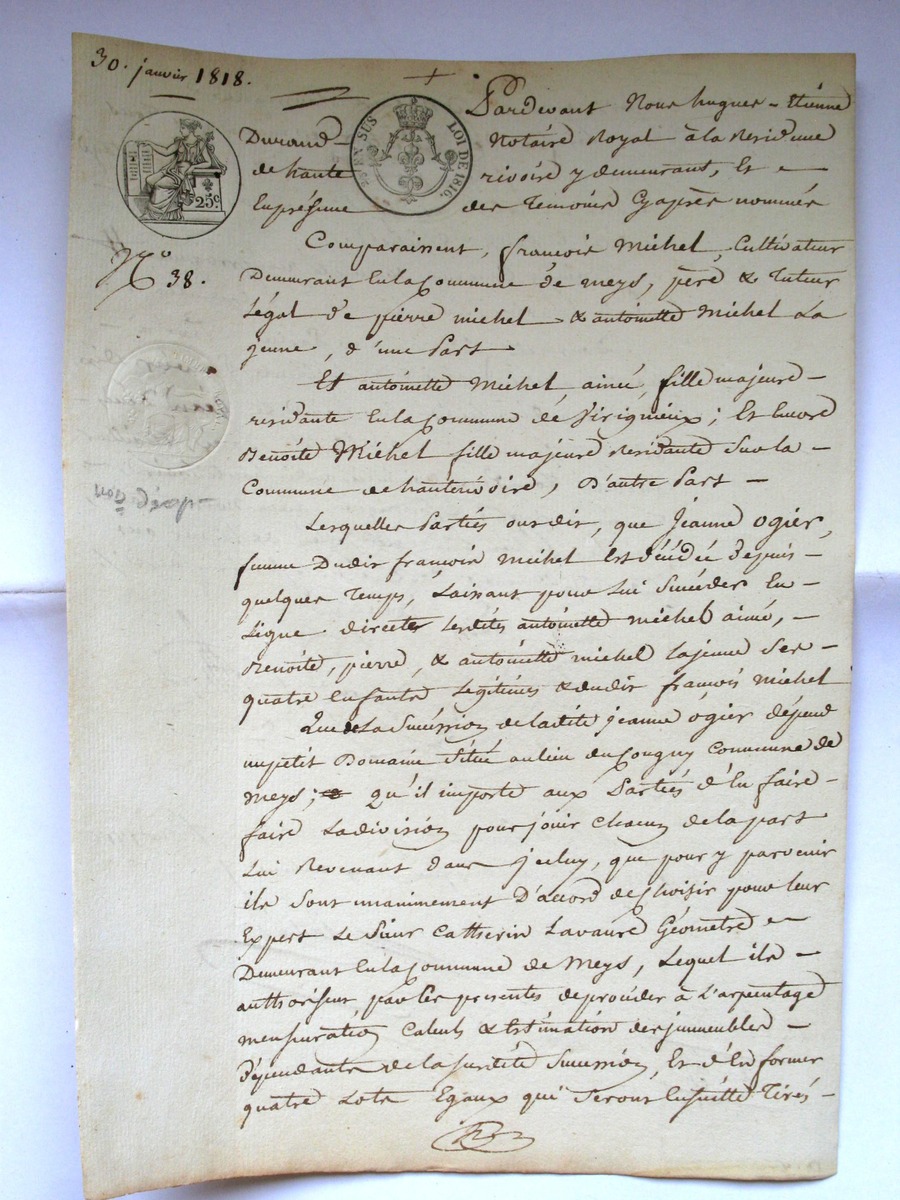 30. janvier 1818.
Pardevant Nous hugues - Etienne
Durand Notaire Royal à la Residence
de haute rivoire y demeurant, Et
En présence des Temoins Cyaprès nommés
EN SUS LOI DE 1816.
25c
N.o 38.
Comparaissent, françois Michel, Cultivateur
Demeurant En la Commune de meys, père & Tuteur
Légal de pierre michel & antoinette Michel La
jeune, d'une Part
Et antoinette Michel ainée, fille majeure
residante En la Commune de Virigneux; Et Encore
Benoite Michel fille majeure Residante Sur la
Commune de hauterivoire, D'autre Part
Lesquelles Parties ont dit, que Jeanne Ogier,
femme Dudit françois Michel Est décédée depuis
quelques Temps, Laissant pour Lui Succéder En
Ligne directe Lesdites antoinette michel ainée,
Benoite, pierre, & antoinette michel la jeune Ses
quatre Enfants Legitimes & dudit françois Michel
Que de La Succession de ladite jeanne Ogier dépend
un petit Domaine Situé au lieu du Cougny Commune de
Meys; qu'il importe aux Parties d'En faire
faire La division pour jouir Chacun de la part
Lui Revenant dans jceluy, que pour y parvenir
ils Sont unanimement D'accord de Choisir pour leur
Expert Le Sieur Catherin Lavaure Géometre
Demeurant En la Commune de Meys, Lequel ils
authorisent par Les presentes de procéder à L'arpentage
mensuration Calculs & Estimation des jmmeubles
dépendants de la susdite Succession, Et d'En former
quatre Lots Egaux qui Seront Ensuitte Tirés